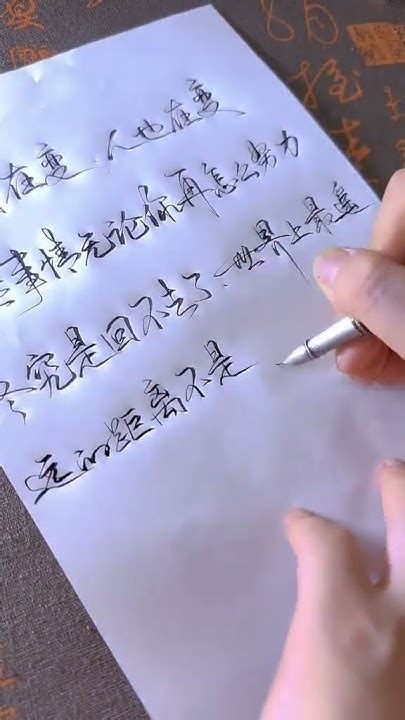 在变，人也在变
事情无论你再怎么努力
终究是回不去了，世界上最遥
远的距离不是